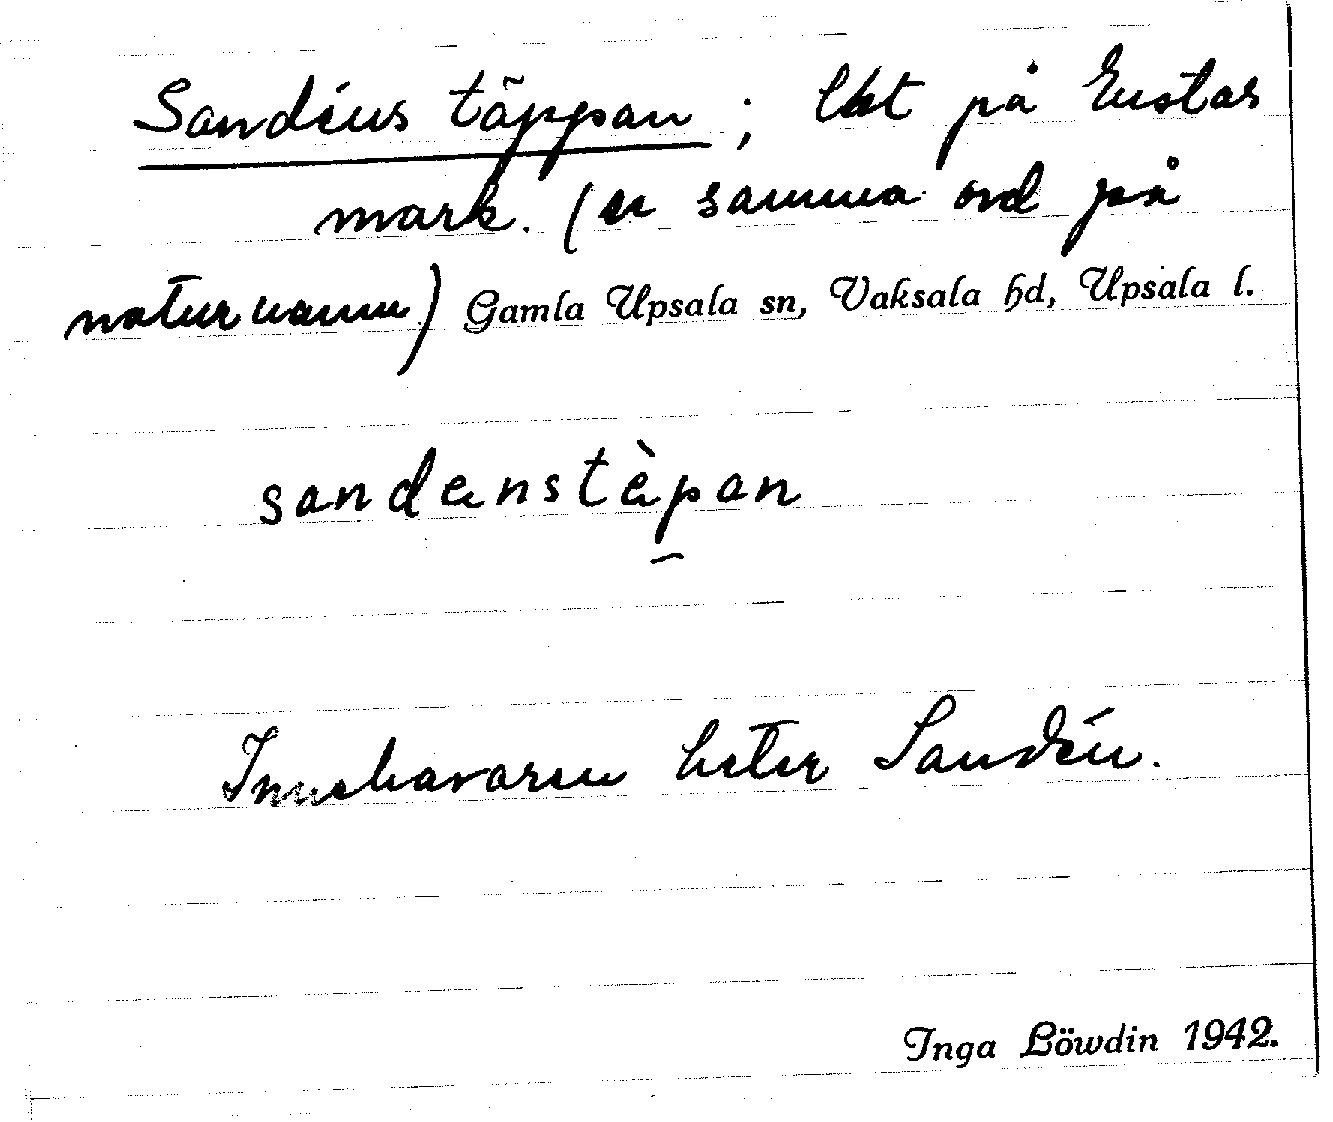 Sandéns täppan; lht på Eustas
mark. (se samma ord på
naturnamn) Gamla Upsala sn, Vaksala hd, Upsala l.
sandænstæ̀pan
Innehavaren heter Sandén.
Inga Löwdin 1942.